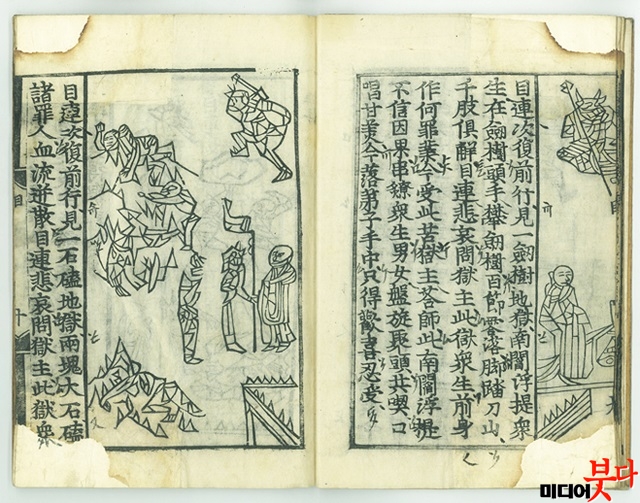 目連次復前行見一劍樹地獄南閻浮提衆
生在劍樹頭手攀劍樹百節零落脚踏刀山
千肢俱解目連悲哀問獄主此獄衆生前身
作何罪業今受此苦獄主荅師此南閻浮提
不信因果串鐐衆生男女盤旋聚頭共喫口
唱甘美今落弟子手中只得歡喜忍受
目連次復前行見一石磕地獄兩塊大石磕
諸罪人血流迸散目連悲哀問獄主此獄衆
目 十
미디어 붓다